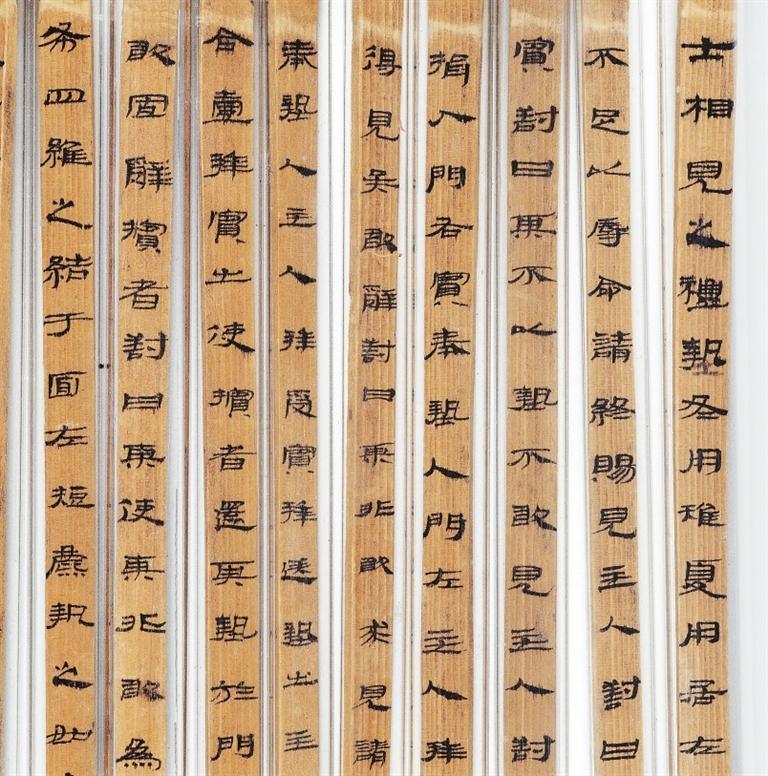 士相見之禮摯冬用稚夏用居左
不足以辱命請終賜見主人對曰
賓對曰某不以摯不敢見主人對
揖入門右賓奉摯入門左主人拜
得見矣敢辭對曰某非敢求見請
奉摯入主人拜受賓拜送摯出主
合壹拜賓出使擯者還其摯於門
敢固辭擯者對曰某使某非敢為
布四維之結于面左短麃執之如